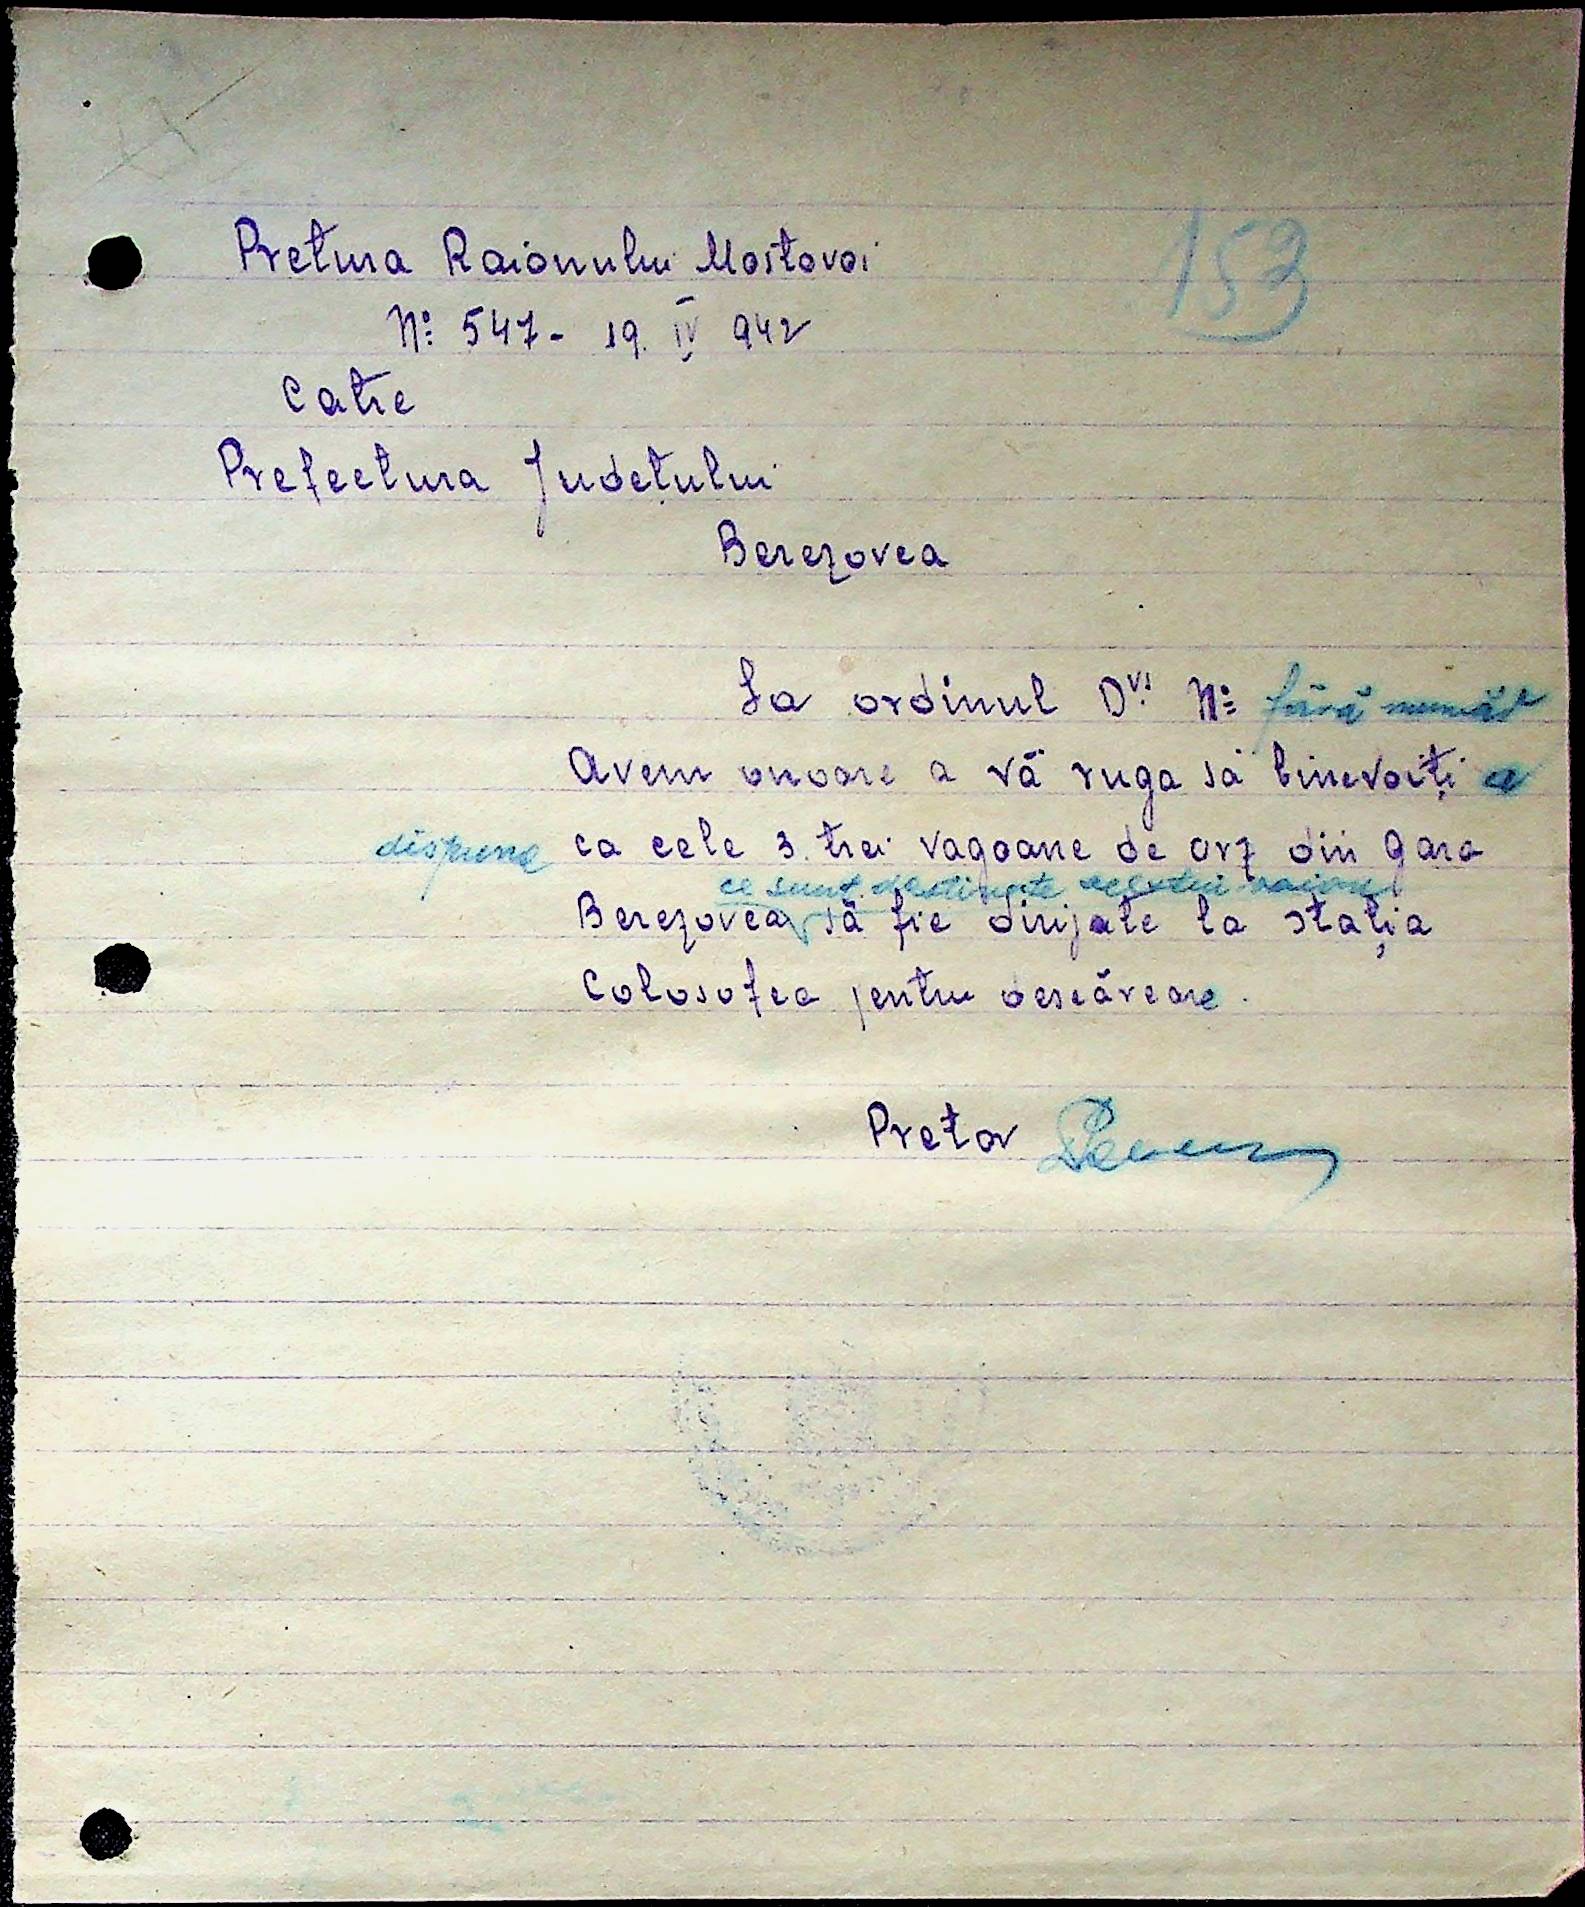 153
Pretura Raionului Mostovoi
Nº 547 - 19. IV 942
Catre
Prefectura Județului
Berezovca
La ordinul Dvs. Nº fără număr
Avem onoare a vă ruga să binevoiți a
dispune ca cele 3. trei vagoane de orz din gara
ce sunt destinate acestui raion
Berezovca să fie dirijate la stația
Colosofca pentru descărcare.
Pretor